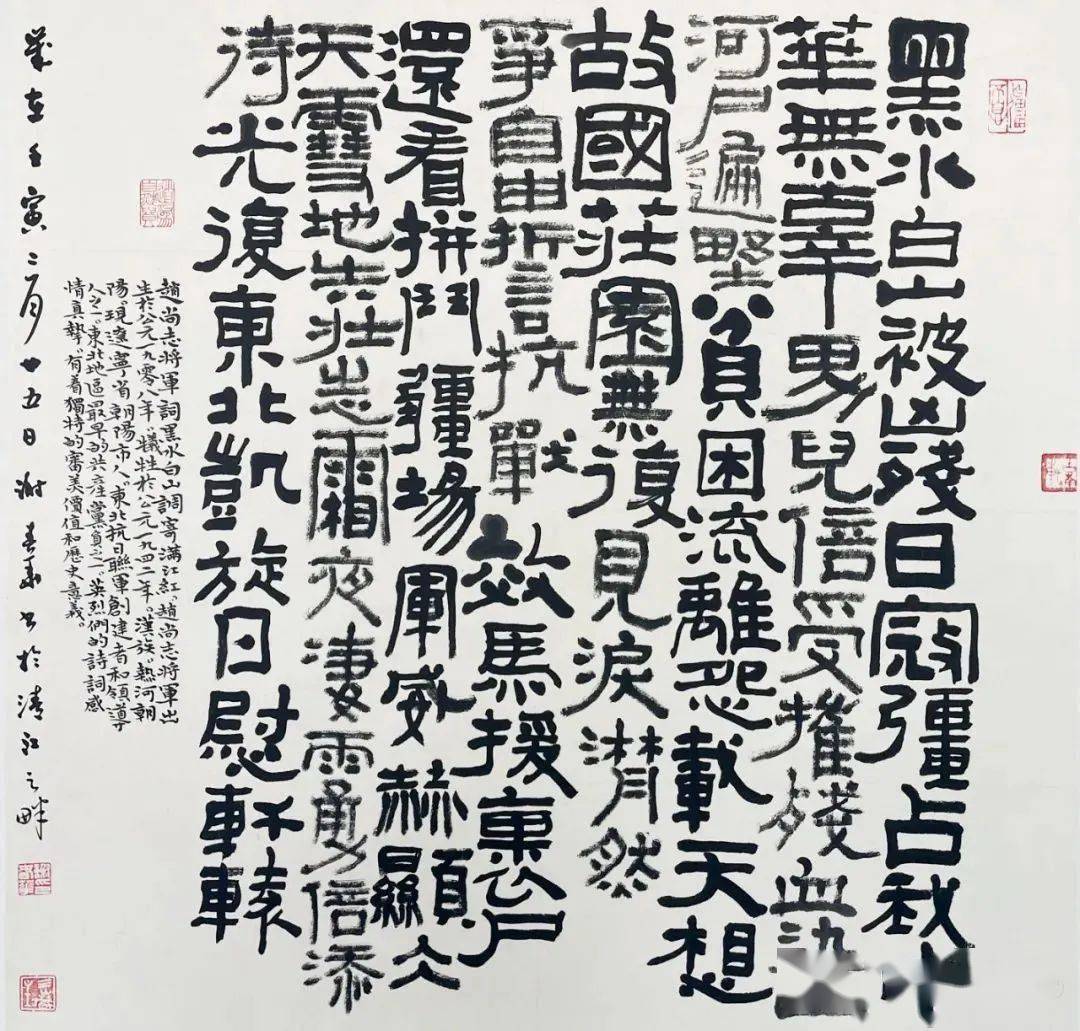 黑水白山被凶殘日寇彊占我
華無辜男兒倍受摧殘血染
河尸遍野貧困流離怨載天想
故國莊園無復見淚潸然
爭自由誓抗戰效馬援裹尸
還看拼鬥疆場軍威赫顯仌
天雪地共壯志霜夜淒雨勇倍添
待光復東北凱旋日慰軒轅
趙尚志將軍詞黑水白山調寄滿江紅。趙尚志將軍出
生於公元一九零八年,犧牲於公元一九四二年。漢族,熱河朝
陽,現遼寧省朝陽市人,東北抗日聯軍創建者和領導
人之一。東北地區最早的共產黨員之一。英烈們的詩詞感
情真摯,有着獨特的審美價值和歷史意義。
歲在壬寅二月廿五日謝春書於清江之畔